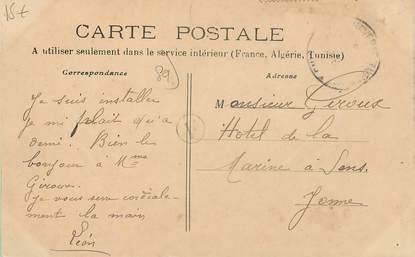 15€
CARTE POSTALE
A utiliser seulement dans le service intérieur (France, Algérie, Tunisie)
Correspondance
Adresse
89
Je suis installer
je mi plait qu'a
demi. Bien le
bonjour à Mme
Giroux.
je vous serre cordiale-
ment la main
Léon
Monsieur Giroux
Hotel de la
Marine à Sens
Yonne